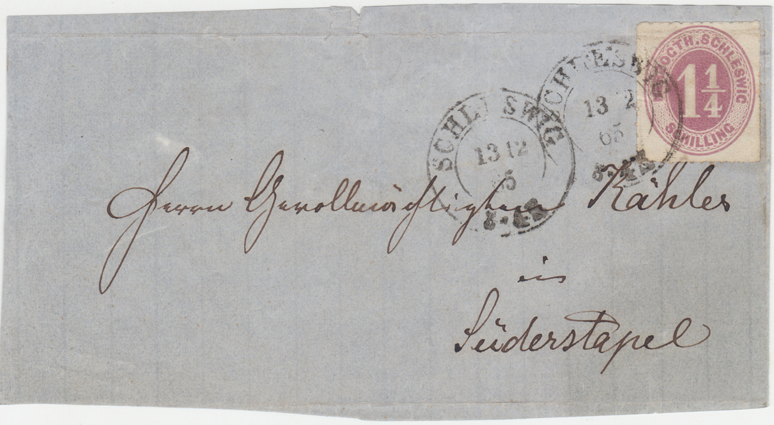 HERZOGTH. SCHLESWIG
1 1/4
SCHILLING
SCHLESWIG
13 12
65
SCHLESWIG
13 12
5
Herrn Gevollmächtigten Kähler
in
Süderstapel